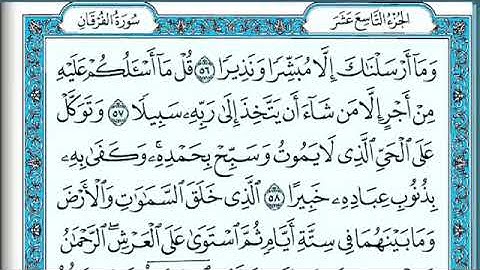 الجزء التاسع عشر
سورة الفرقان
وَمَآ أَرْسَلْنَٰكَ إِلَّا مُبَشِّرًا وَنَذِيرًا ٥٦ قُلْ مَآ أَسْـَٔلُكُمْ عَلَيْهِ
مِنْ أَجْرٍ إِلَّا مَن شَآءَ أَن يَتَّخِذَ إِلَىٰ رَبِّهِۦ سَبِيلًا ٥٧ وَتَوَكَّلْ
عَلَى ٱلْحَىِّ ٱلَّذِى لَا يَمُوتُ وَسَبِّحْ بِحَمْدِهِۦ ۚ وَكَفَىٰ بِهِۦ
بِذُنُوبِ عِبَادِهِۦ خَبِيرًا ٥٨ ٱلَّذِى خَلَقَ ٱلسَّمَٰوَٰتِ وَٱلْأَرْضَ
وَمَا بَيْنَهُمَا فِى سِتَّةِ أَيَّامٍ ثُمَّ ٱسْتَوَىٰ عَلَى ٱلْعَرْشِ ۚ ٱلرَّحْمَٰنُ